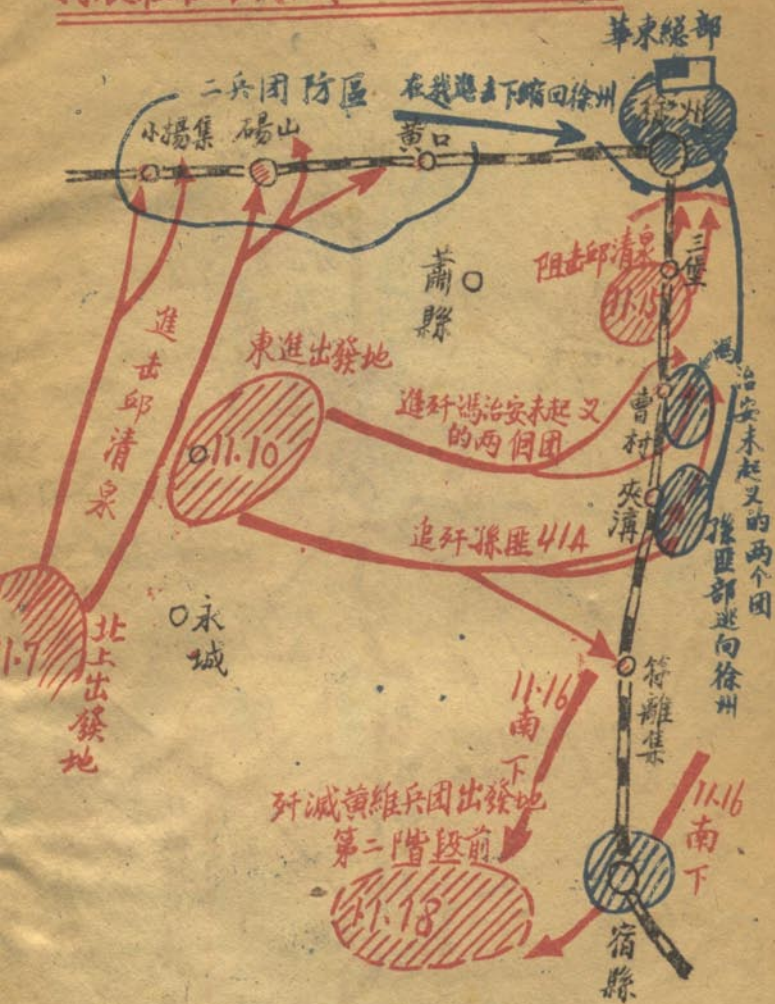 華東總部
徐州
二兵团防區
在我進击下縮回徐州
小揚集
碭山
黄口
三堡
阻击邱清泉
11.15
蕭縣
進击邱清泉
東進出發地
11.10
進歼馮治安未起义
的两個团
曹村
夾溝
馮治安未起义的两个团
孫匪部逃向徐州
追歼孫匪41A
11.7
北上出發地
永城
符離集
11.16
南下
11.16
南下
歼滅黄維兵团出發地
第二階段前
11.18
宿縣